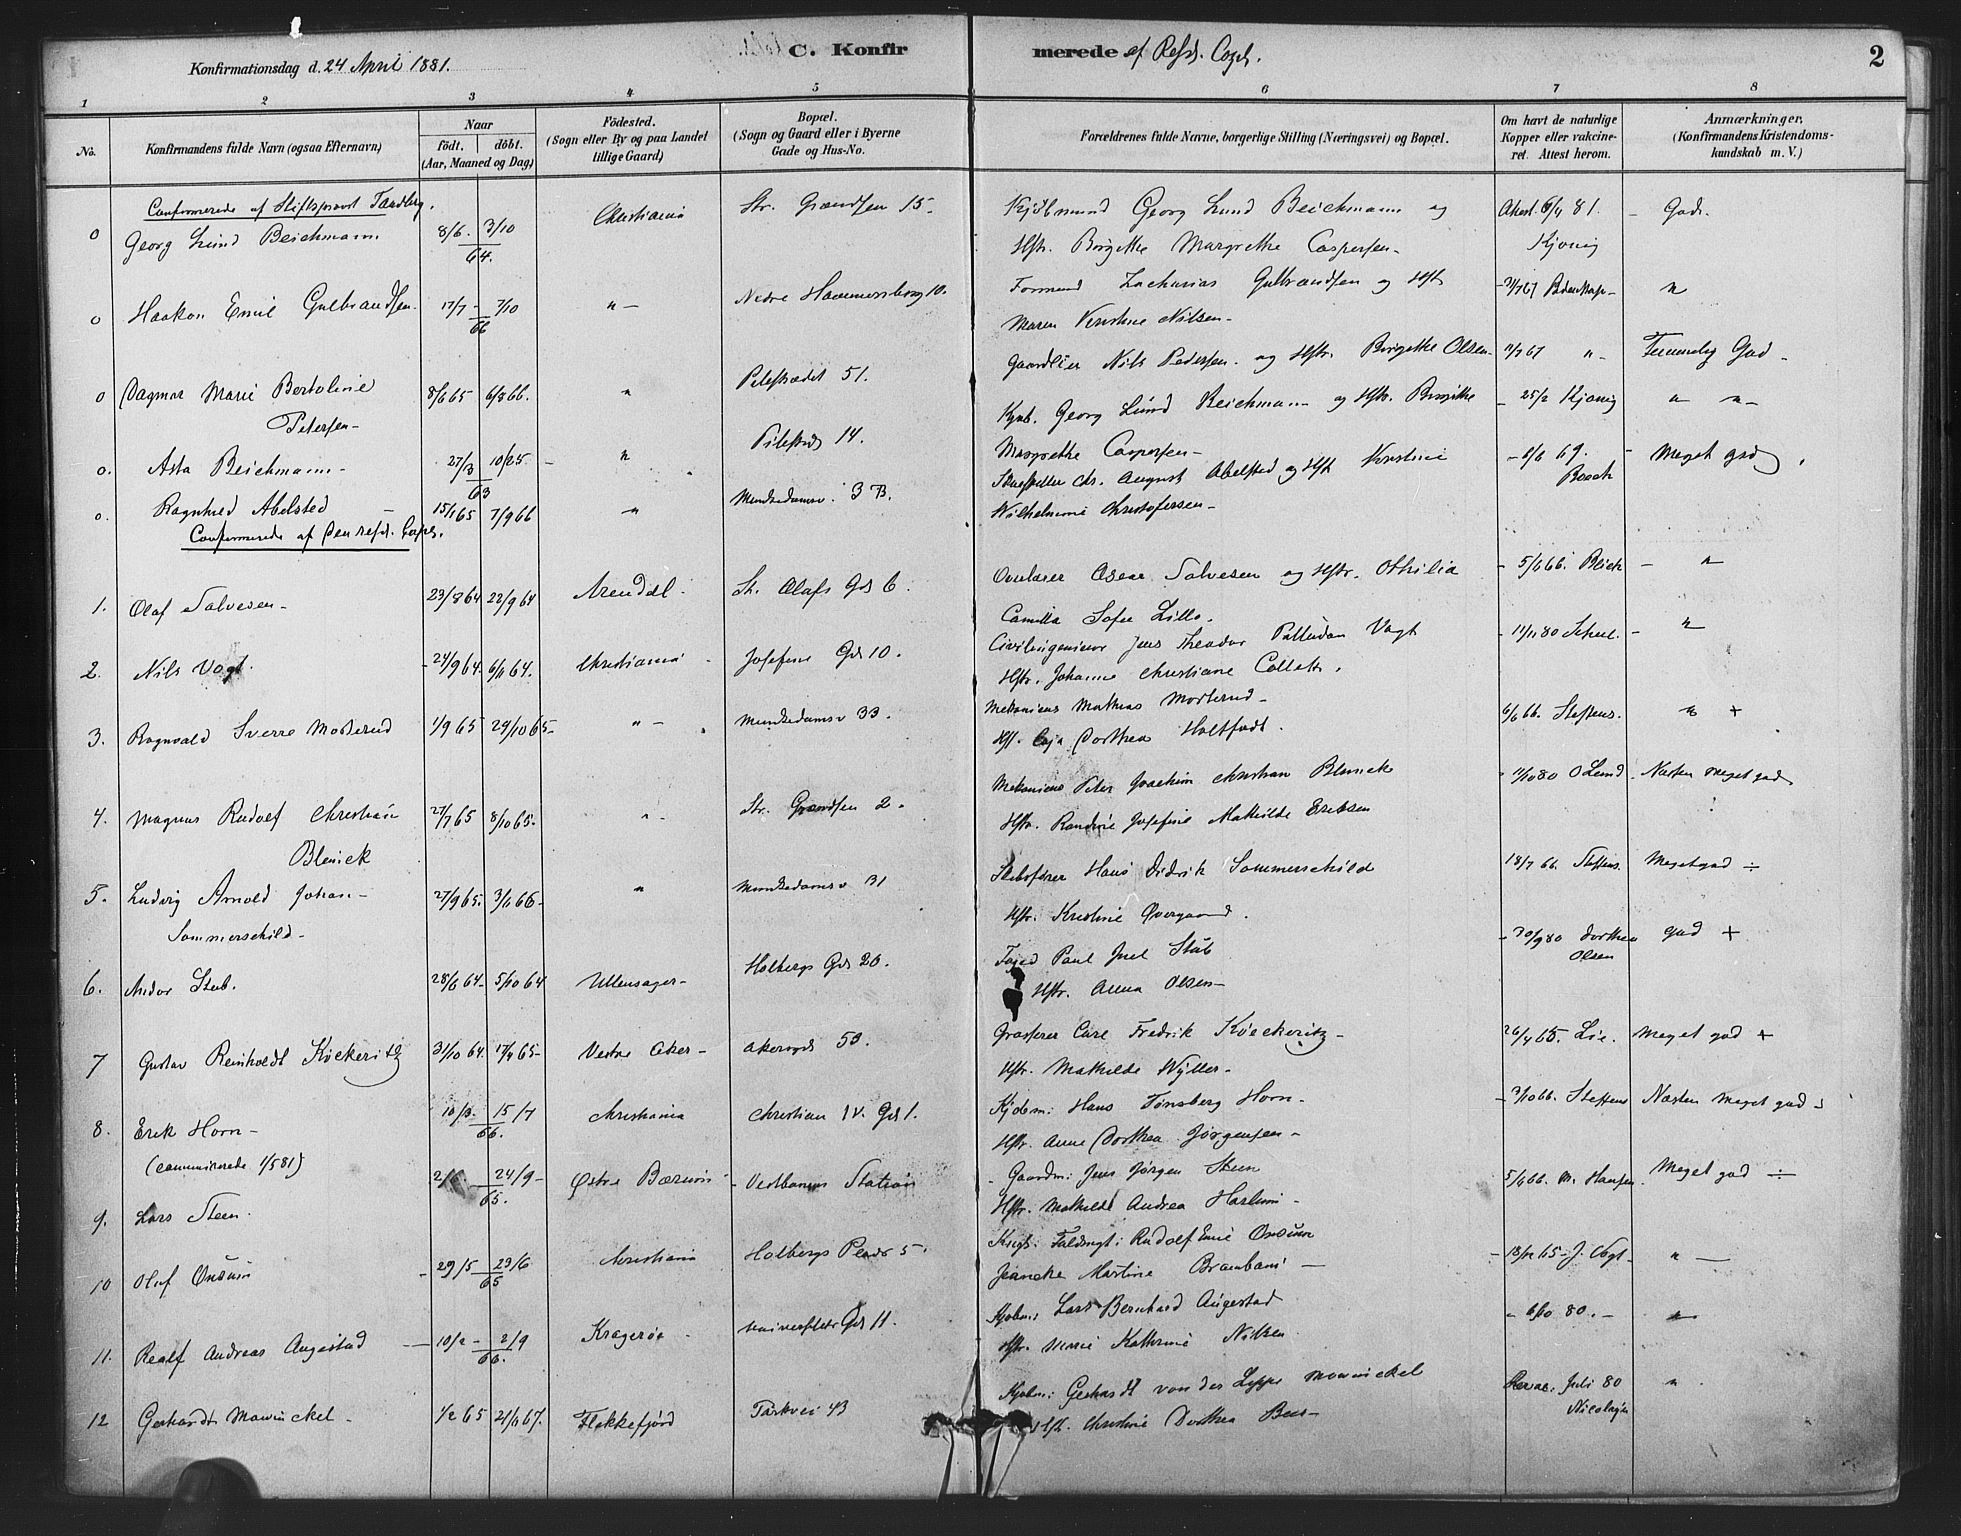 C. Konfirmerede af Resid. Capel.
2
Konfirmationsdag d. 24 April 1881.
1 2 3 4 5 6 7 8
No.
Konfirmandens fulde Navn (ogsaa Efternavn)
Naar
födt. döbt.
(Aar, Maaned og Dag)
Födested.
(Sogn eller By og paa Landet
tillige Gaard)
Bopæl.
(Sogn og Gaard eller i Byerne
Gade og Hus-No.
Forældrenes fulde Navne, borgerlige Stilling (Næringsvei) og Bopæl.
Om havt de naturlige
Kopper eller vakcine-
ret. Attest herom.
Anmærkninger,
(Konfirmandens Kristendoms-
kundskab m. V.)
Confirmerede af Stiftsprovst Tandberg.
0 Georg Lund Beichmann 8/6. 3/10 64. Christiania Str. Grændsen 15.
Kjøbmand Georg Lund Beichmann og
Hstr. Birgitte Margrethe Caspersen
81. Kjonig God.
0 Haakon Emil Gulbrandsen 17/7 - 7/10 66 " Nedre Hammersborg 10.
Formand Zacharias Gulbrandsen og Hstr
Maren Kristine Nilsen "
0 Dagmar Marie Bertoline
Petersen 8/6 65 6/8 66. " Pilestrædet 51.
Gaardeier Nils Pedersen og Hstr. Birgitte Olsen 67 " Temmelig God
0. Asta Beichmann 27/3 10/25 63 " Pilestrd 14.
Kjøb. Georg Lund Beichmann og Hstr. Birgitte
Margrethe Caspersen 25/2 Kjonig " "
0. Ragnhild Abelsted 15/1 65 7/9 66 " Munkedamsv. 3 B.
August Abelsted og Hstr Kristine
Wilhelmine Christofersen 69. Meget god
Confirmerede af Den resid. Capel.
1. Olaf Salvesen 23/8 64 22/9 64 Arendal St. Olafs Gd 6.
Oscar Salvesen og Hstr. Othilia
Camilla Sofie Lillo. 66. "
2. Nils Vogt. 24/9 64 6/11 64. Christiania Josefine Gd 10.
Civilingeniör Jens Theodor Palludan Vogt
Hstr. Johanne Christiane Collett. 11/11 80 "
3. Ragnvald Sverre Mosterud 1/9 65 29/10 65 " Munkedamsv 33.
Mekanicus Mathias Mosterud
Hst. Caja Dorthea Holtfodt. 6/6 66. Steffens. " +
4. Magnus Rudolf Christian
Blenick 27/7 65 8/10 65 " Str. Grændsen 2
Mekanicus Peter Joachim Christian Blenick
Hstr. Randine Josefine Mathilde Eriksen 11/10 80 O Lund Næsten meget god
5. Ludvig Arnold Johan
Sommerschild 27/9 65. 3/6 66 " Munkedamsv 31
Skibsfører Hans Didrik Sommerschild
Hstr. Kristine Overgaard. 18/7 66. Steffens. Meget god ÷
6. Andor Stub. 28/6 64 5/10 64 Ullensager Holbergs Gd 20.
Foged Paul Juel Stub
Hstr. Anna Olsen 30/9 80 Dorthea
Olsen God +
7 Gustav Reinholdt Köckeritz 31/10 64. 17/4 65 Vestre Aker Akersgd 53.
Carl Fredrik Köckeritz
Hstr. Mathilde Wyller 26/4 65. Meget god +
8. Erik Horn
(communicerede 1/5 81) 10/3. 15/7 66. Christiania Christian IV. Gd 1.
Kjöbm: Hans Tønsberg Horn
Hstr. Anne Dorthea Jørgensen 66. Steffens Næsten Meget god
9. Lars Steen. 24/9 65. Østre Bærum Vestbanens Station
Gaardm: Jens Jørgen Steen
Hstr. Mathilde Andrea Harlum 66. M. Hansen. Meget god ÷
10 Oluf Onsum 29/5 23/6 65 Christiania Holbergs Plads 5.
Rudolf Emil Onsum
Martine 65 J. Vogt "
11. Realf Andreas Augestad 10/2 2/9 66. Kragerøe Universitets Gd 11.
Kjøbm: Lars Bernhard Augestad
Hstr. Marie Kathrine Nilsen 6/10 80. "
12 Gerhardt Mowinckel 1/2 65 21/6 67. Flekkefjord Parkvei 43
Kjøbm: Gerhardt von der Lippe Mowinckel
Hstr. Christine Dorthea Beer Juli 80
Nicolaysen "